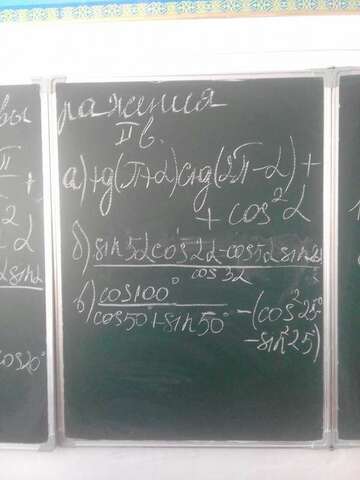 вы
ражения
II в.
а) tg(π+α) ctg(2π-α) +
+ cos²α
б) sin5αcos2α-cos5αsin2α
cos3α
в) cos100°
cos50°+sin50°
-(cos²25°-
-sin²25°)
sinα
cos20°